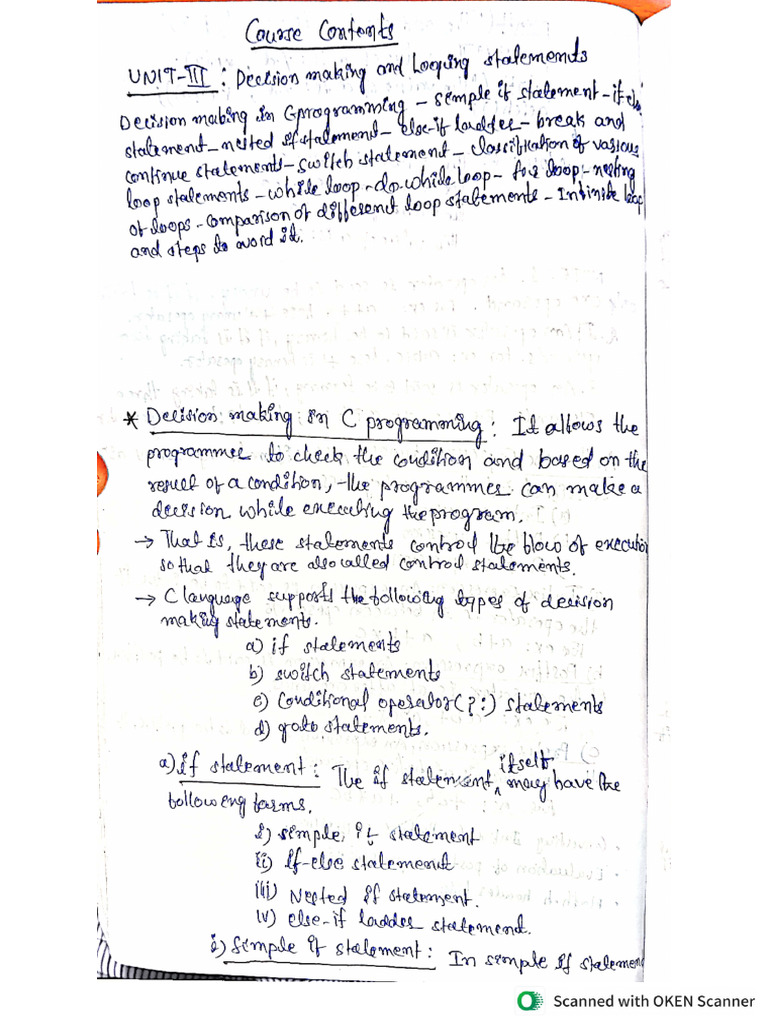 Course Contents
UNIT-III : Decision making and Looping statements
Decision making in C programming - simple if statement - if else
statement - nested if statement - else-if ladder - break and
continue statements - switch statement - classification of various
loop statements - while loop - do while loop - for loop - nesting
of loops - comparison of different loop statements - Infinite loop
and steps to avoid it.
* Decision making in C programming : It allows the
programmer to check the condition and based on the
result of a condition, the programmer can make a
decision while executing the program.
→ That is, these statements control the flow of execution
so that they are also called control statements.
→ C language supports the following types of decision
making statements.
a) if statements
b) switch statements
c) Conditional operator (?:) statements
d) goto statements.
a) if statement : The if statement ^ itself may have the
following forms.
i) simple if statement
ii) If-else statement
iii) Nested if statement.
iv) else-if ladder statement.
i) Simple if statement : In simple if statement
Scanned with OKEN Scanner